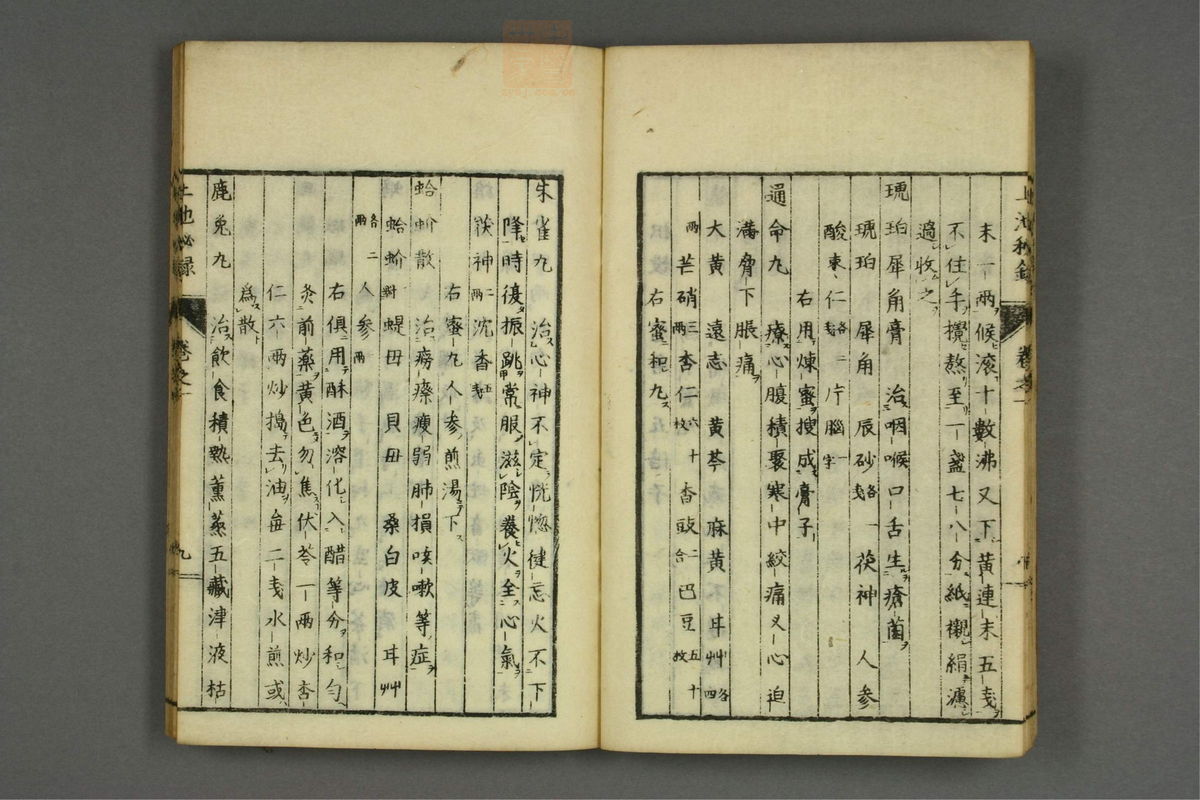 末一両候滚十數沸又下黄連末五戔
不住手攪熬至一盞七八分紙襯絹濾
過收之
琥珀犀角膏 治咽喉口舌生瘡菌
琥珀 犀角 辰砂各一戔 茯神 人参
酸枣仁各二戔 片腦一字
右用煉蜜搜成膏子
通命九 療心腹積聚寒中絞痛又心迫
滿脅下脹痛
大黄 遠志 黄芩 麻黄 甘艸各四
両 芒硝三両 杏仁六十枚 香豉二合 巴豆五十枚
右蜜和九
朱雀九 治心神不定恍惚健忘火不下
降時復振跳常服滋陰養火全心氣
茯神二両 沈香五戔
右蜜九人参煎湯下
蛤蚧散 治癆瘵瘦弱肺損咳嗽等症
蛤蚧一對 蝭母 貝母 桑白皮 甘艸
各二両 人参両
右俱用酥酒溶化入醋等分和匀
炙前藥黄色勿焦伏苓一両炒杏
仁六両炒搗去油毎二戔水煎或
為散
鹿兎九 治飲食積熱薰蒸五藏津液枯
上池秘録 卷之一 九